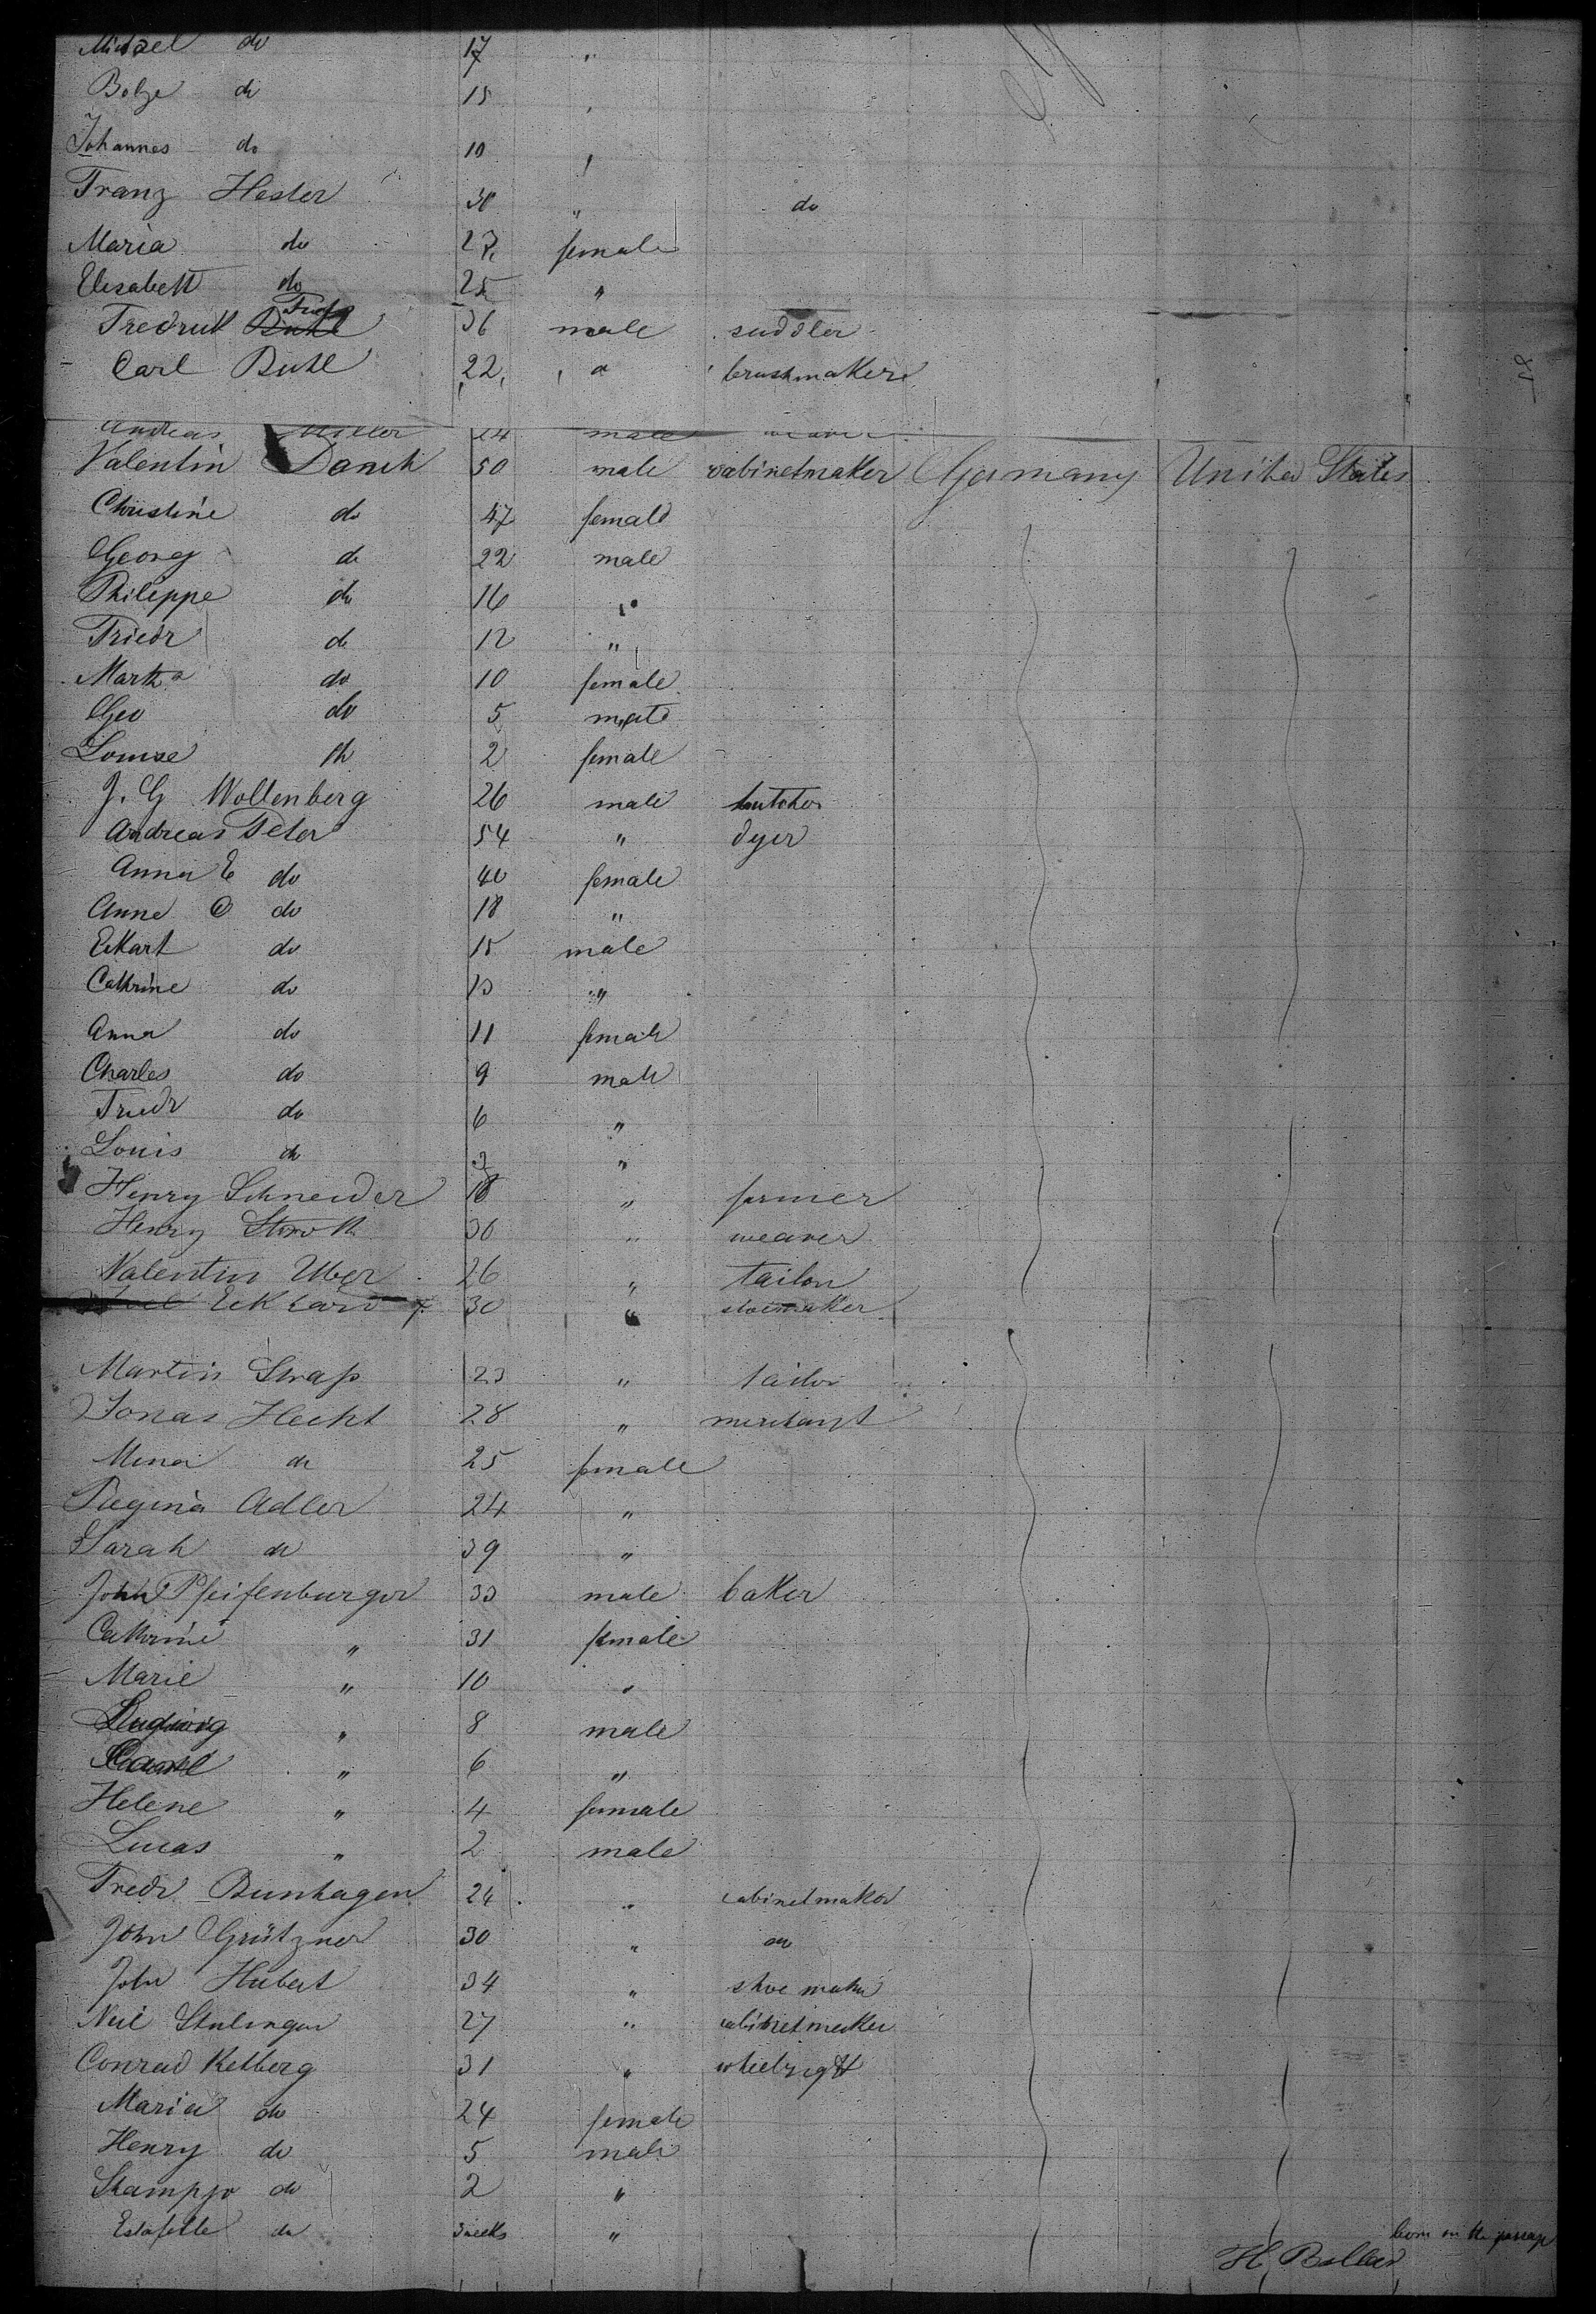 Michael do 17 "
do 15 "
Johannes do 10 "
Franz Hester 30 " do
Maria do 27 female
Elisabett do 25 "
Fredrick 36 male saddler
Carl Buhl 22 " brushmaker
Andreas Miller 24 male weaver
Valentin Danch 50 male cabinetmaker Germany United States
Christine do 47 female
Georg do 22 male
Philippe do 16 "
Friedr do 12 "
Martha do 10 female
Geo do 5 male
Louise do 2 female
J. G Wollenberg 26 male butcher
Andreas Peter 54 " dyer
Anna E do 40 female
Anne C do 18 "
Eckart do 15 male
Cathrine do 13 "
Anna do 11 female
Charles do 9 male
Friedr do 6 "
Louis do 3 "
Henry Schneider 18 " farmer
Henry Stroth 30 " weaver
Valentin Uber 26 " tailor
Eckhard 30 " shoemaker
Martin Strass 23 " tailor
Jonas Hecht 28 " merchant
Mina do 25 female
Regina Adler 24 "
Sarah do 39 "
John Pfeifenburger 33 male baker
Cathrine " 31 female
Marie " 10 "
Ludwig " 8 male
" 6 "
Helene " 4 female
Lucas " 2 male
Fredr Bunhagen 24 " cabinetmaker
John Grützner 30 " do
John Hubert 34 " shoe maker
27 " cabinetmaker
Conrad Kelberg 31 " wheelright
Maria do 24 female
Henry do 5 male
do 2 "
Estafette do 3 weeks " born on the passage
H.